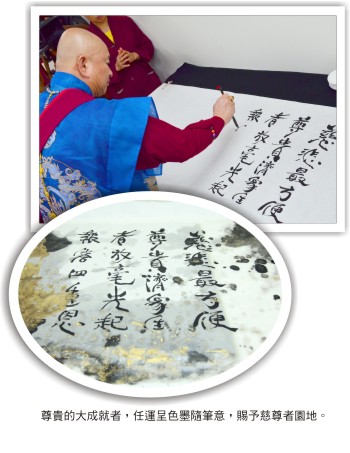 慈悲最方便
尊貴濟眾生
者放毫光起
報
慈悲最方便
尊貴濟眾生
者放毫光起
報答四重恩
尊貴的大成就者，任運呈色墨隨筆意，賜予慈尊者園地。